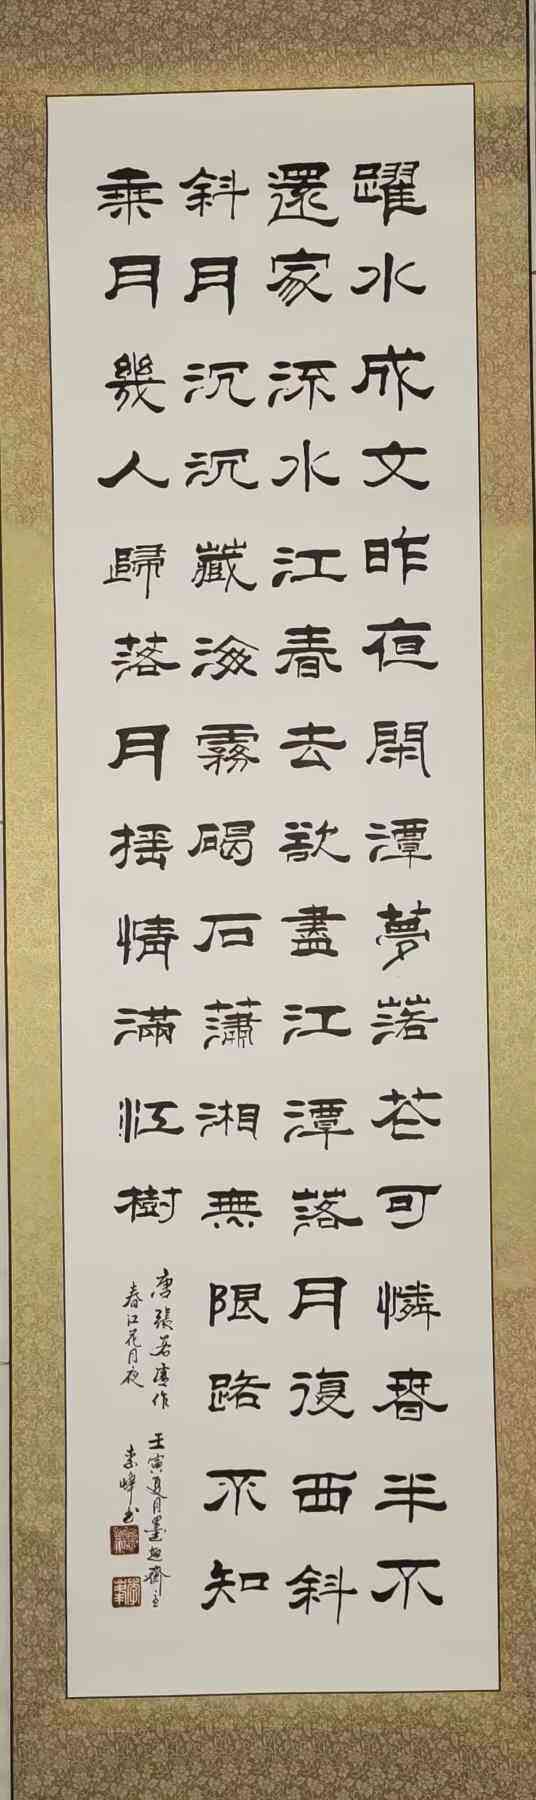 躍水成文昨夜閑潭夢落花可憐春半不
還家流水江春去欲盡江潭落月復西斜
斜月沉沉藏海霧碣石蕭湘無限路不知
乗月幾人歸落月揺情滿江樹
唐張若虛作
春江花月夜
壬寅夏月墨趣齋主
素峰书